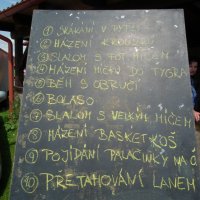 ① SKÁKÁNÍ V PYTLI
② HÁZENÍ KROUŽKŮ
③ SLALOM S FOT. MÍČEM
④ HÁZENÍ MÍČKŮ DO TYGRA
⑤ BĚH S OBRUČÍ
⑥ BOLASO
⑦ SLALOM S VELKÝM MÍČEM
⑧ HÁZENÍ BASKET KOŠ
⑨ POJÍDÁNÍ PALAČINKY NA
⑩ PŘETAHOVÁNÍ LANEM